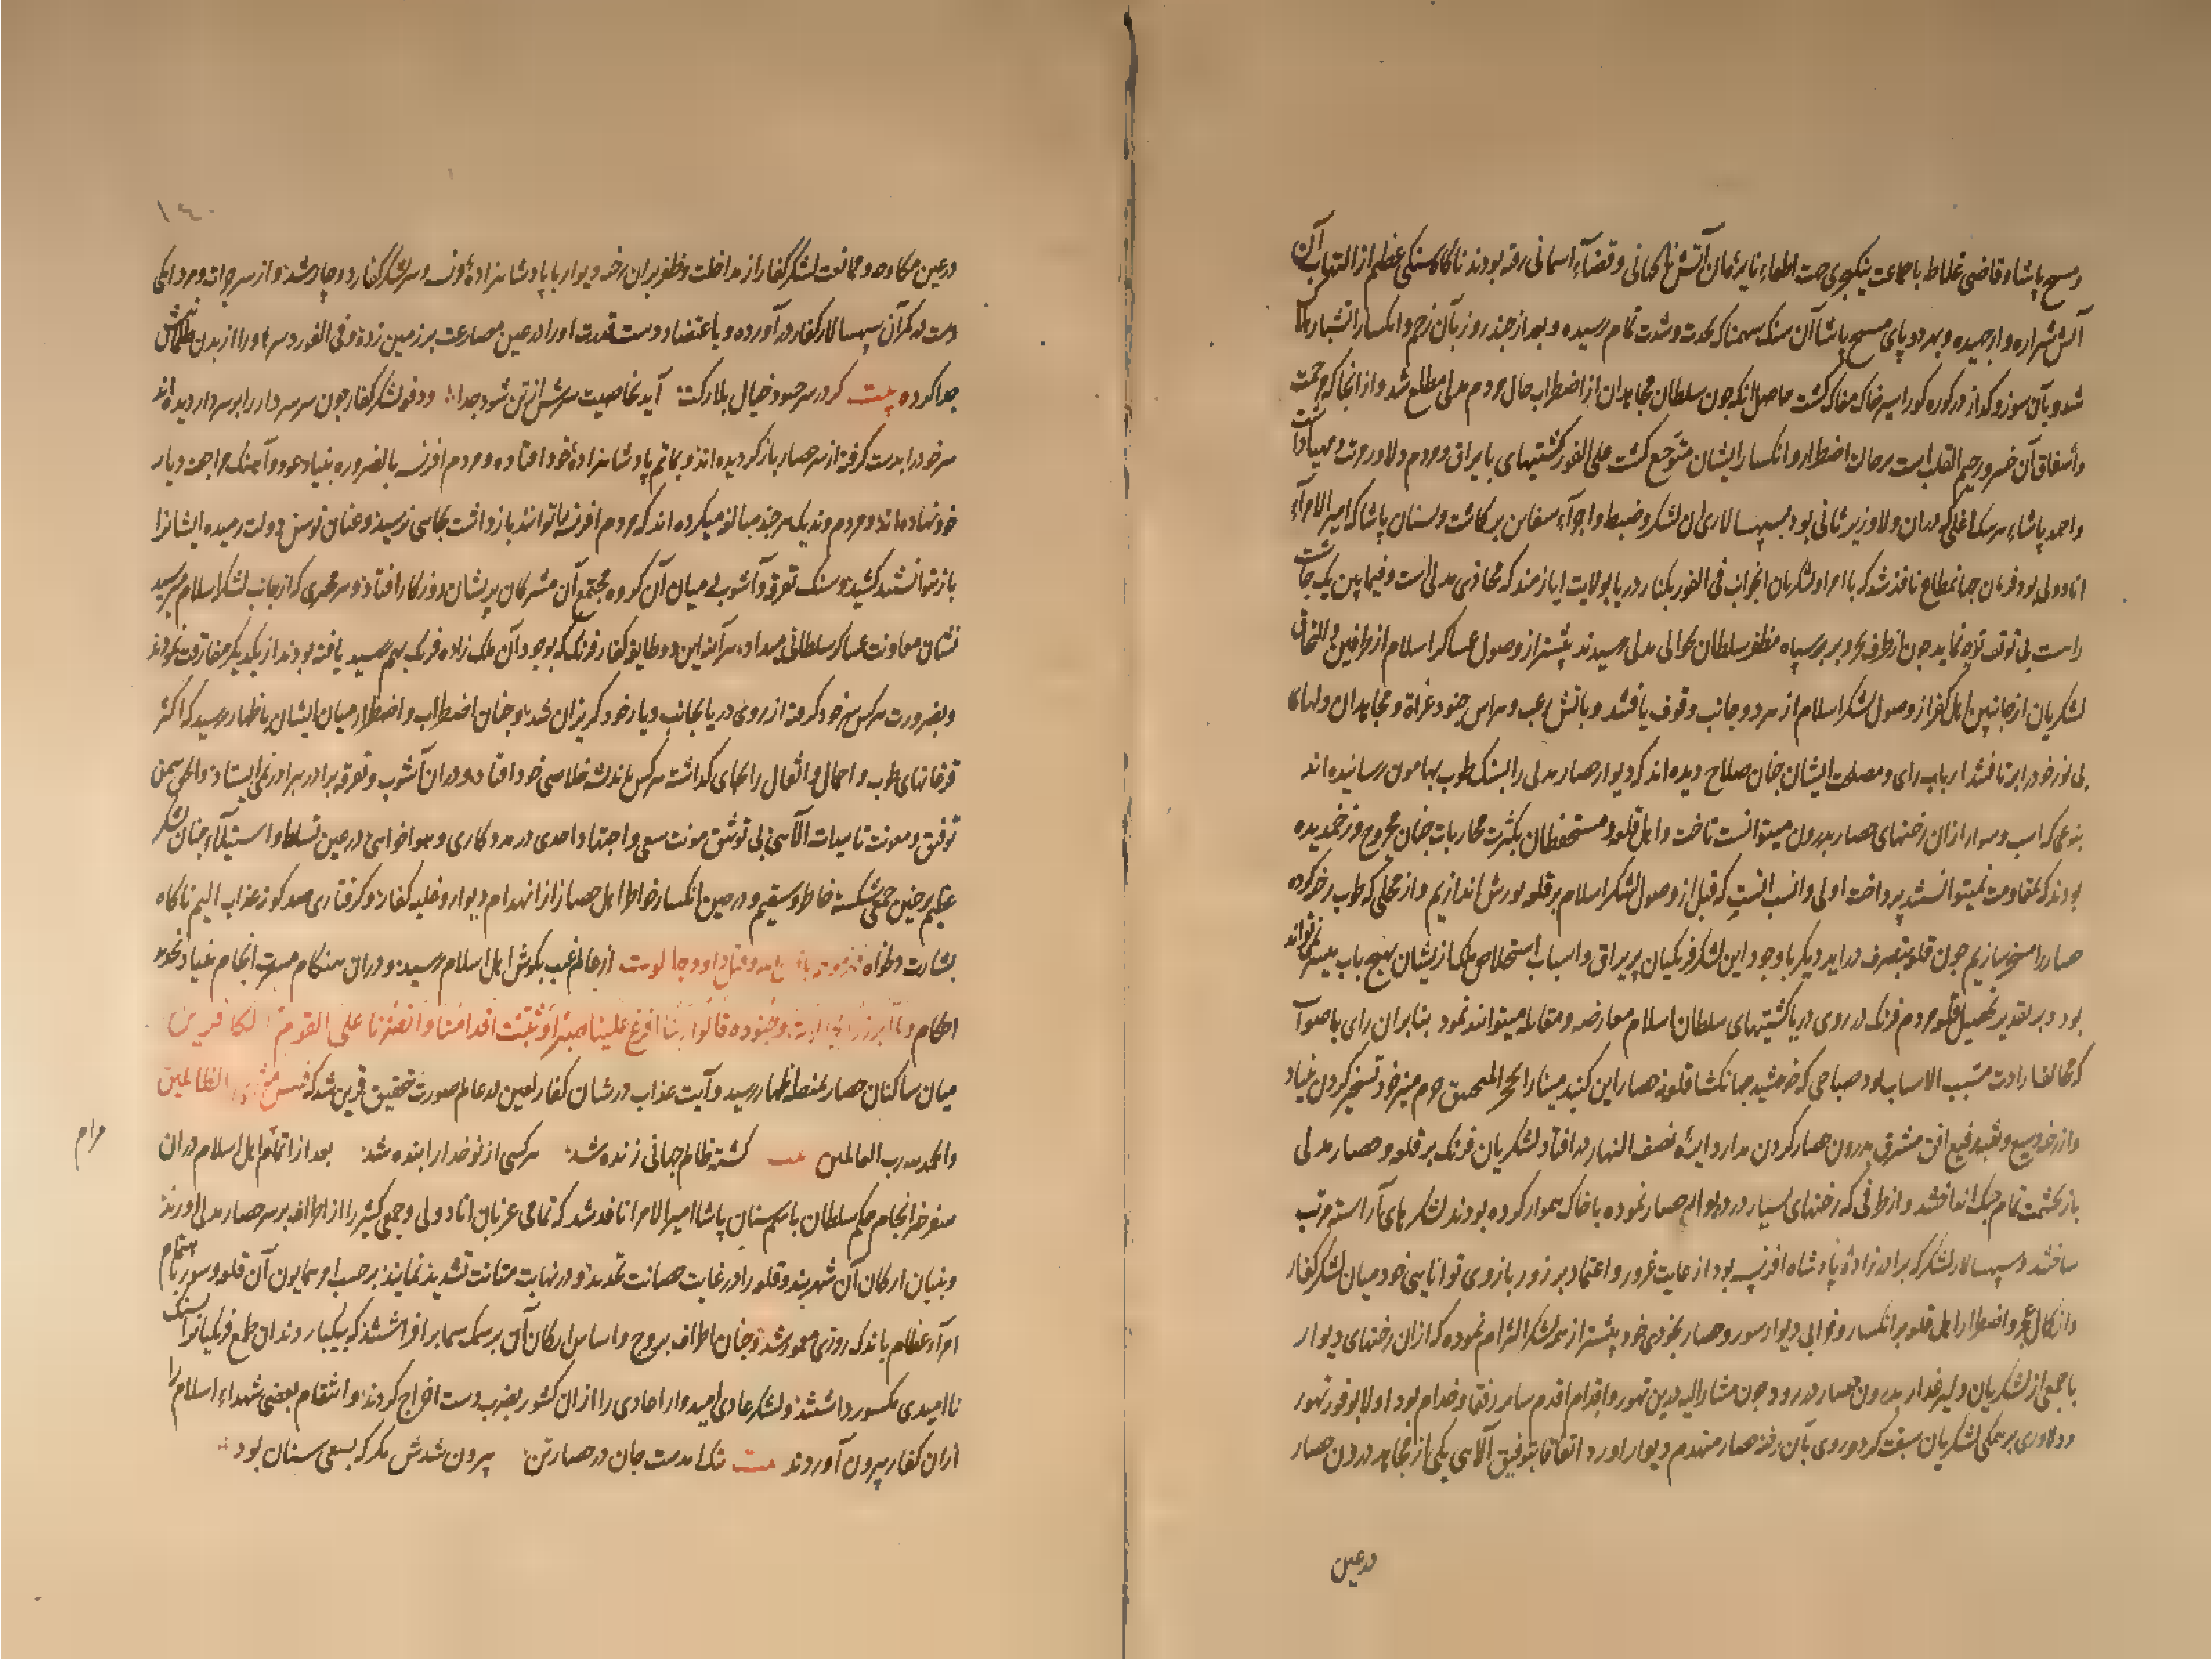 و مسیح پاشا و قاضی غلاطه با جماعت ینکچری جهت اطفاء نایره آن آتش ناکهانی و قضآء آسمانی رفته بودند ناکاه سنکی عظیم از التهاب آن
آتش شراره وار جهیده و بهر دو پای مسیح پاشا آن سنک سهمناک بحدت و شدت تمام رسیده و بعد از چند روز بآن زخم و انکسار
شد و بآن سوز و کداز در کوره کور اسیر خاک مغاک کشت حاصل آنکه چون سلطان مجاهدان از اضطراب حال مردم مدلی مطلع شد و از انجا که مرحمت
و اشفاق آن خسرو رحیم القلب است بر حال اضطرار و انکسار ایشان متوجع کشت علی الفور کشتیهای با یراق و مردم دلاور
و احمد پاشاء هرسک اغلی که دران ولا وزیر ثانی بود بسپهسالاری آن لشکر و ضبط و اجرآء سفاین برکاشت و سنان پاشا که امیر الامرآء
اناطولی بود فرمان جهانمطاع نافذ شد که با امرا و لشکریان انجوانب فی الفور بکنار دریا بولایت ایازمند که محاذی مدلی است و فیما بین یک
راست بی توقف توجه نماید چون از طرف بحر و بر سپاه مظفر سلطان بحوالی مدلی رسیدند پیشتر از وصول عساکر اسلام از طرفین
لشکریان از جانبین اهل کفر از وصول لشکر اسلام از هر دو جانب وقوف یافتند و باتش رعب و هراس جنود غزاة و مجاهدان دلهای
بی نور خود را بر تافتند ارباب رای و مصلحت ایشان چنان صلاح دیده اند که دیوار حصار مدلی را بسنک طوب بهامون رسانیده اند
بنوعی که اسب و سوار ازان رخنهای حصار بدرون میتوانست تاخت و اهل قلعه و مستحفظان بکثرت محاربات چنان مجروح و زخم دیده
بودند که بمقاومت نمیتوانستند پرداخت اولی و انسب انست که قبل از وصول لشکر اسلام بر قلعه یورش اندازیم و از محلی که طوب رخنه کرده
حصار را مسخر سازیم چون قلعه بتصرف دراید دیکر با وجود این لشکر فرنکیان پر یراق و اسباب استخلاص ملک از ایشان بهیچ باب میسر نمی تواند
بود و بر تقدیر تحصیل قلعه مردم فرنک در روی دریا با کشتیهای سلطان اسلام معارضه و مقابله میتوانند نمود بنابران رای با صوآب
که مخالف ارادت مسبب الاسباب بود صباحی که خورشید جهانکشا قلعه حصار این کنبد مینا را
و از رخنه وسیع و ثقبه رفیع افق مشرق بدرون حصار کردن مدار دایره نصف النهار در افتاد لشکریان فرنک بر قلعه و حصار مدلی
باز بحشمت تمام جنک انداختند و از طرفی که رخنهای بسیار در دیوار حصار نموده با خاک هموار کرده بودند لشکرهای آراسته مرتب
ساختند و سپهسالار لشکر که برادر زادهٔ پادشاه افرنسه بود از غایت غرور و اعتماد بر زور بازوی توانایی خود میان لشکر کفار
و از کمال عجز و اضطرار اهل قلعه بر انکسار و خرابی دیوار سور و حصار بخودی خود پیشتر از همه لشکر التزام نموده که ازان رخنهای دیوار
با جمعی از لشکریان دلیر خود را بدرون حصار در رود چون مشار الیه بدین تهور و اقدام اقدم سایر رفقا و خدام بود اولا بوفور تهور
و دلاوری بر همکی لشکریان سبقت کرد و روی بآن رخنه حصار منهدم دیوار اورد اتفاقا بتوفیق آلاهی یکی از مجاهد درون حصار
درعین
۱٤۰
درعین مکاوحه و ممانعت لشکر کفار از مداخلت و ظفر بران رخنه دیوار با پادشاهزادهٔ افرنسه و سر لشکر کفار دوچار شد و از سر جرات و مردانکی
دست در کمر آن سپهسالار کفار در آورده و با عتضاد دست قدرت او را در عین مصارعت بر زمین زده و فی الفور سر او را از بدن
جدا کرده بیت که در سر حسود خیال بلا رکت آید بخاصیت سرش از تن شود جدا و وفور لشکر کفار چون سر سردار را بر سر دار دیده اند
سر خود را بدست کرفته از سر حصار باز کردیده اند و بماتم پادشاهزادهٔ خود افتاده و مردم افرنسه بالضروره بنیاد عود و آهنک مراجعت دیار
خود نهاده اند و مردم وندیک هر چند مبالغه میکرده اند که مردم افرنسه را توانند باز داشت بجایی نرسید و عنان توسن دولت رمیده ایشانرا
باز نتوانستند کشید و سنک تفرقه و آشوب در میان آن کروه مجتمع آن مشرکان پریشان روزکار افتاد و هر مخبری که از جانب لشکر اسلام میرسید
نشان معاونت عساکر سلطانی میداد هر آینه این دو طایفه کفار فرنک که بوجود آن ملک زاده فرنک بهم رسید یافته بودند از یکدیکر مفارقت نمودند
و بضرورت هر کس سر خود کرفته از روی دریا بجانب دیار خود کریزان شد و چنان اضطراب و اضطرار میان ایشان باظهار رسید که اکثر
قزغانهای طوب و احمال و اثقال را بجای کداشته هر کس باندیشه خلاصی خود افتاد و دران آشوب و تفرقه برادر ببرادر نمی ایستاد و الحق بیمن
توفیق و معونت تاییدات آلآهی بی توثیق مونت سعی و اجتهاد احدی در مددکاری و هواخواهی در عین تسلط و استیلآء چنان لشکر
عظیم بر چنین جمعی شکسته خاطر و سقیم و در حین انکسار خواطر اهل حصار از انهدام دیوار و غلبه کفار و کرفتاری بعد کونه عذاب الیم ناکاه
بشارت دلخواه فهزموهم باذن الله و قتل داود جالوت از عالم غیب بکوش اهل اسلام رسید و دران هنکام مسرت انجام بنیاد نخوت
احکام و لما برزوا لجالوت وجنوده قالوا ربنا افرغ علینا صبرا وثبت اقدامنا وانصرنا علی القوم الکافرین
میان ساکنان حصار بمنصه اظهار رسید و آیت عذاب در شان کفار لعین در عالم صورت تحقیق قرین شد که فبئس مثوی الظالمین
والحمد لله رب العالمین بیت کشته ظالم جهانی زنده شد هر کسی از نو خدا را بنده شد بعد از اتمام اهل اسلام دران
مرام
سفر خیر انجام حکم سلطان باسم سنان پاشا امیر الامرا نافذ شد که تمامی عزبان اناطولی و جمعی کثیر را از اطراف بر سر حصار مدلی اورند
و بنیان ارکان آن شهربند و قلعه را در غایت حصانت تمدید و در نهایت متانت تشدید نمایند بر حسب امر همایون آن قلعه و سور باهتمام
امرآء عظام باندک روزی معمور شد و چنان اطراف بروج و اساس ارکان آن بر سمک سما بر افراشتند که بیکبار دندان طمع فرنکیانرا بسنک
ناامیدی مکسور داشتند و لشکر اعادی امیدوار احادی را ازان کشور بضرب دست اخراج کردند و انتقام بعضی شهداء اسلام را
ازان کفار بیرون آوردند بیت جان در حصار تن بیرون شدش مکر که بسعی سنان بود